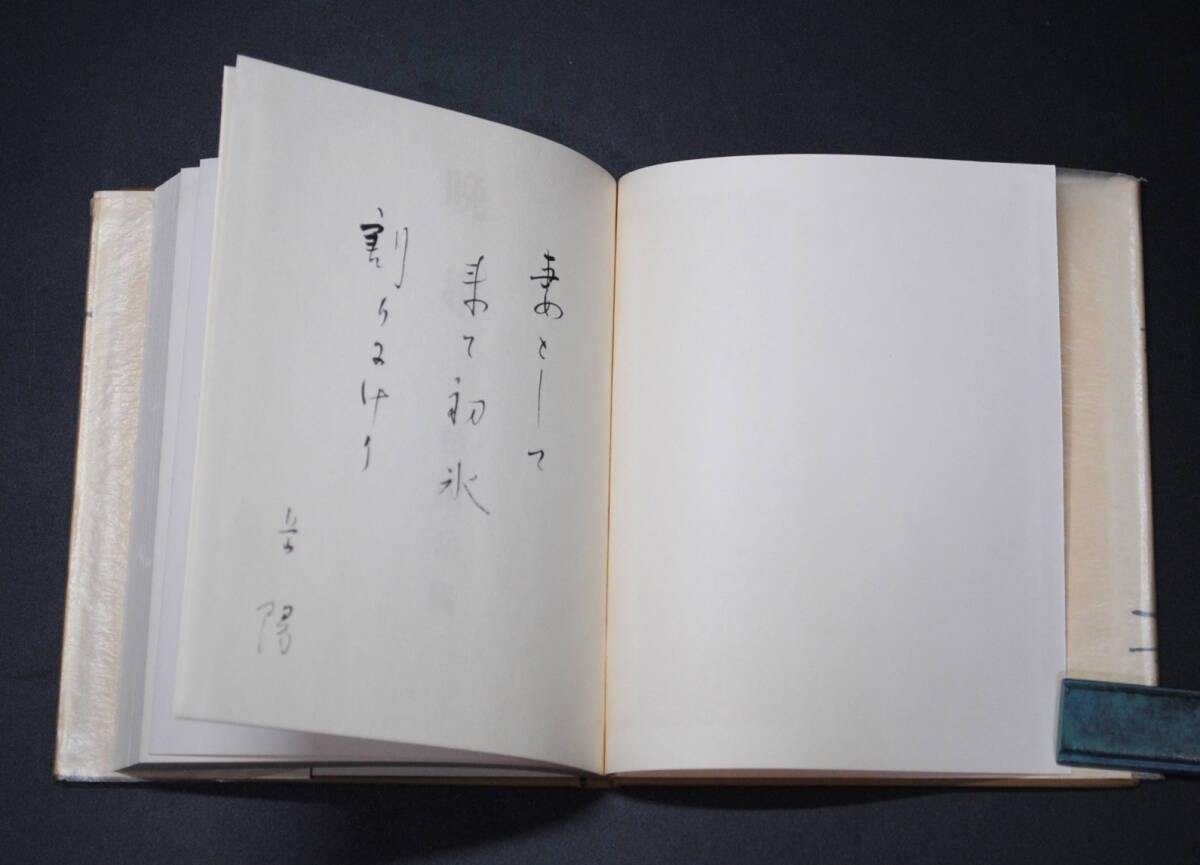 妻として
来て初氷
割りにけり
岳陽